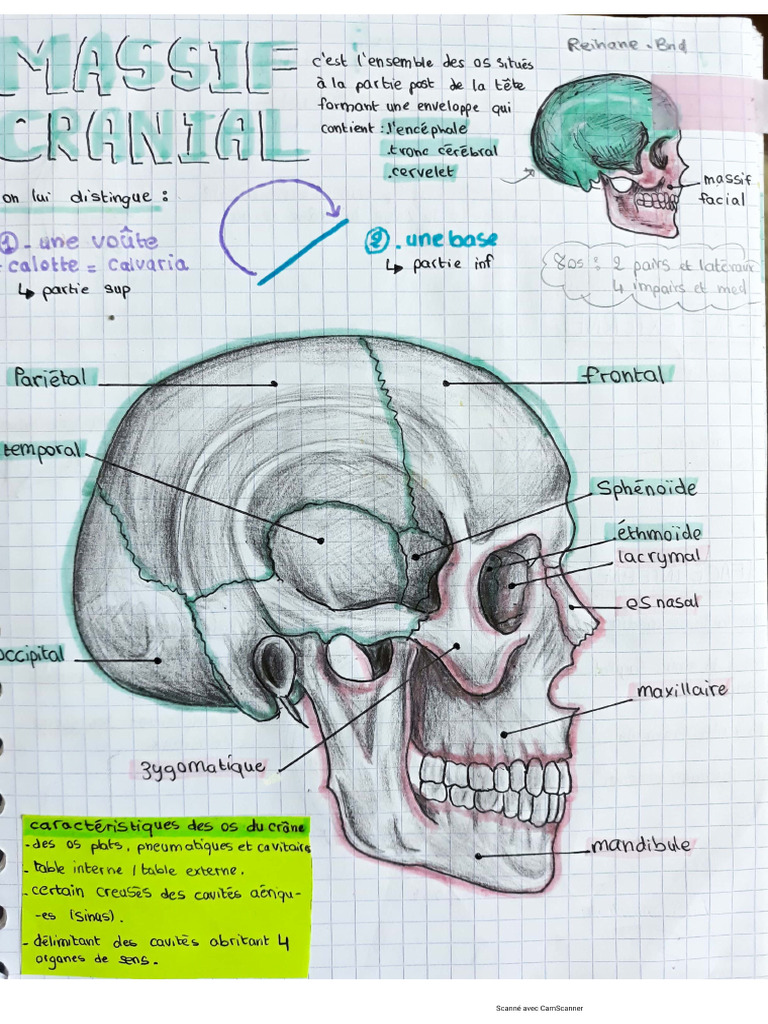 MASSIF
CRANIAL
c'est l'ensemble des os situés
à la partie post de la tête
formant une enveloppe qui
contient : .l'encéphale
.tronc cérébral
.cervelet
Reihane.Bnd
massif
facial
on lui distingue :
1 - une voûte
- calotte = calvaria
↳ partie sup
2 . une base
↳ partie inf
8os : 2 pairs et latéraux
4 impairs et med
Pariétal
frontal
temporal
Sphénoïde
éthmoïde
lacrymal
os nasal
occipital
maxillaire
zygomatique
mandibule
caractéristiques des os du crâne
- des os plats, pneumatiques et cavitaires
- table interne / table externe.
- certain creusés des cavités aériqu-
-es (Sinus).
- délimitant des cavités abritant 4
organes de sens.
Scanné avec CamScanner